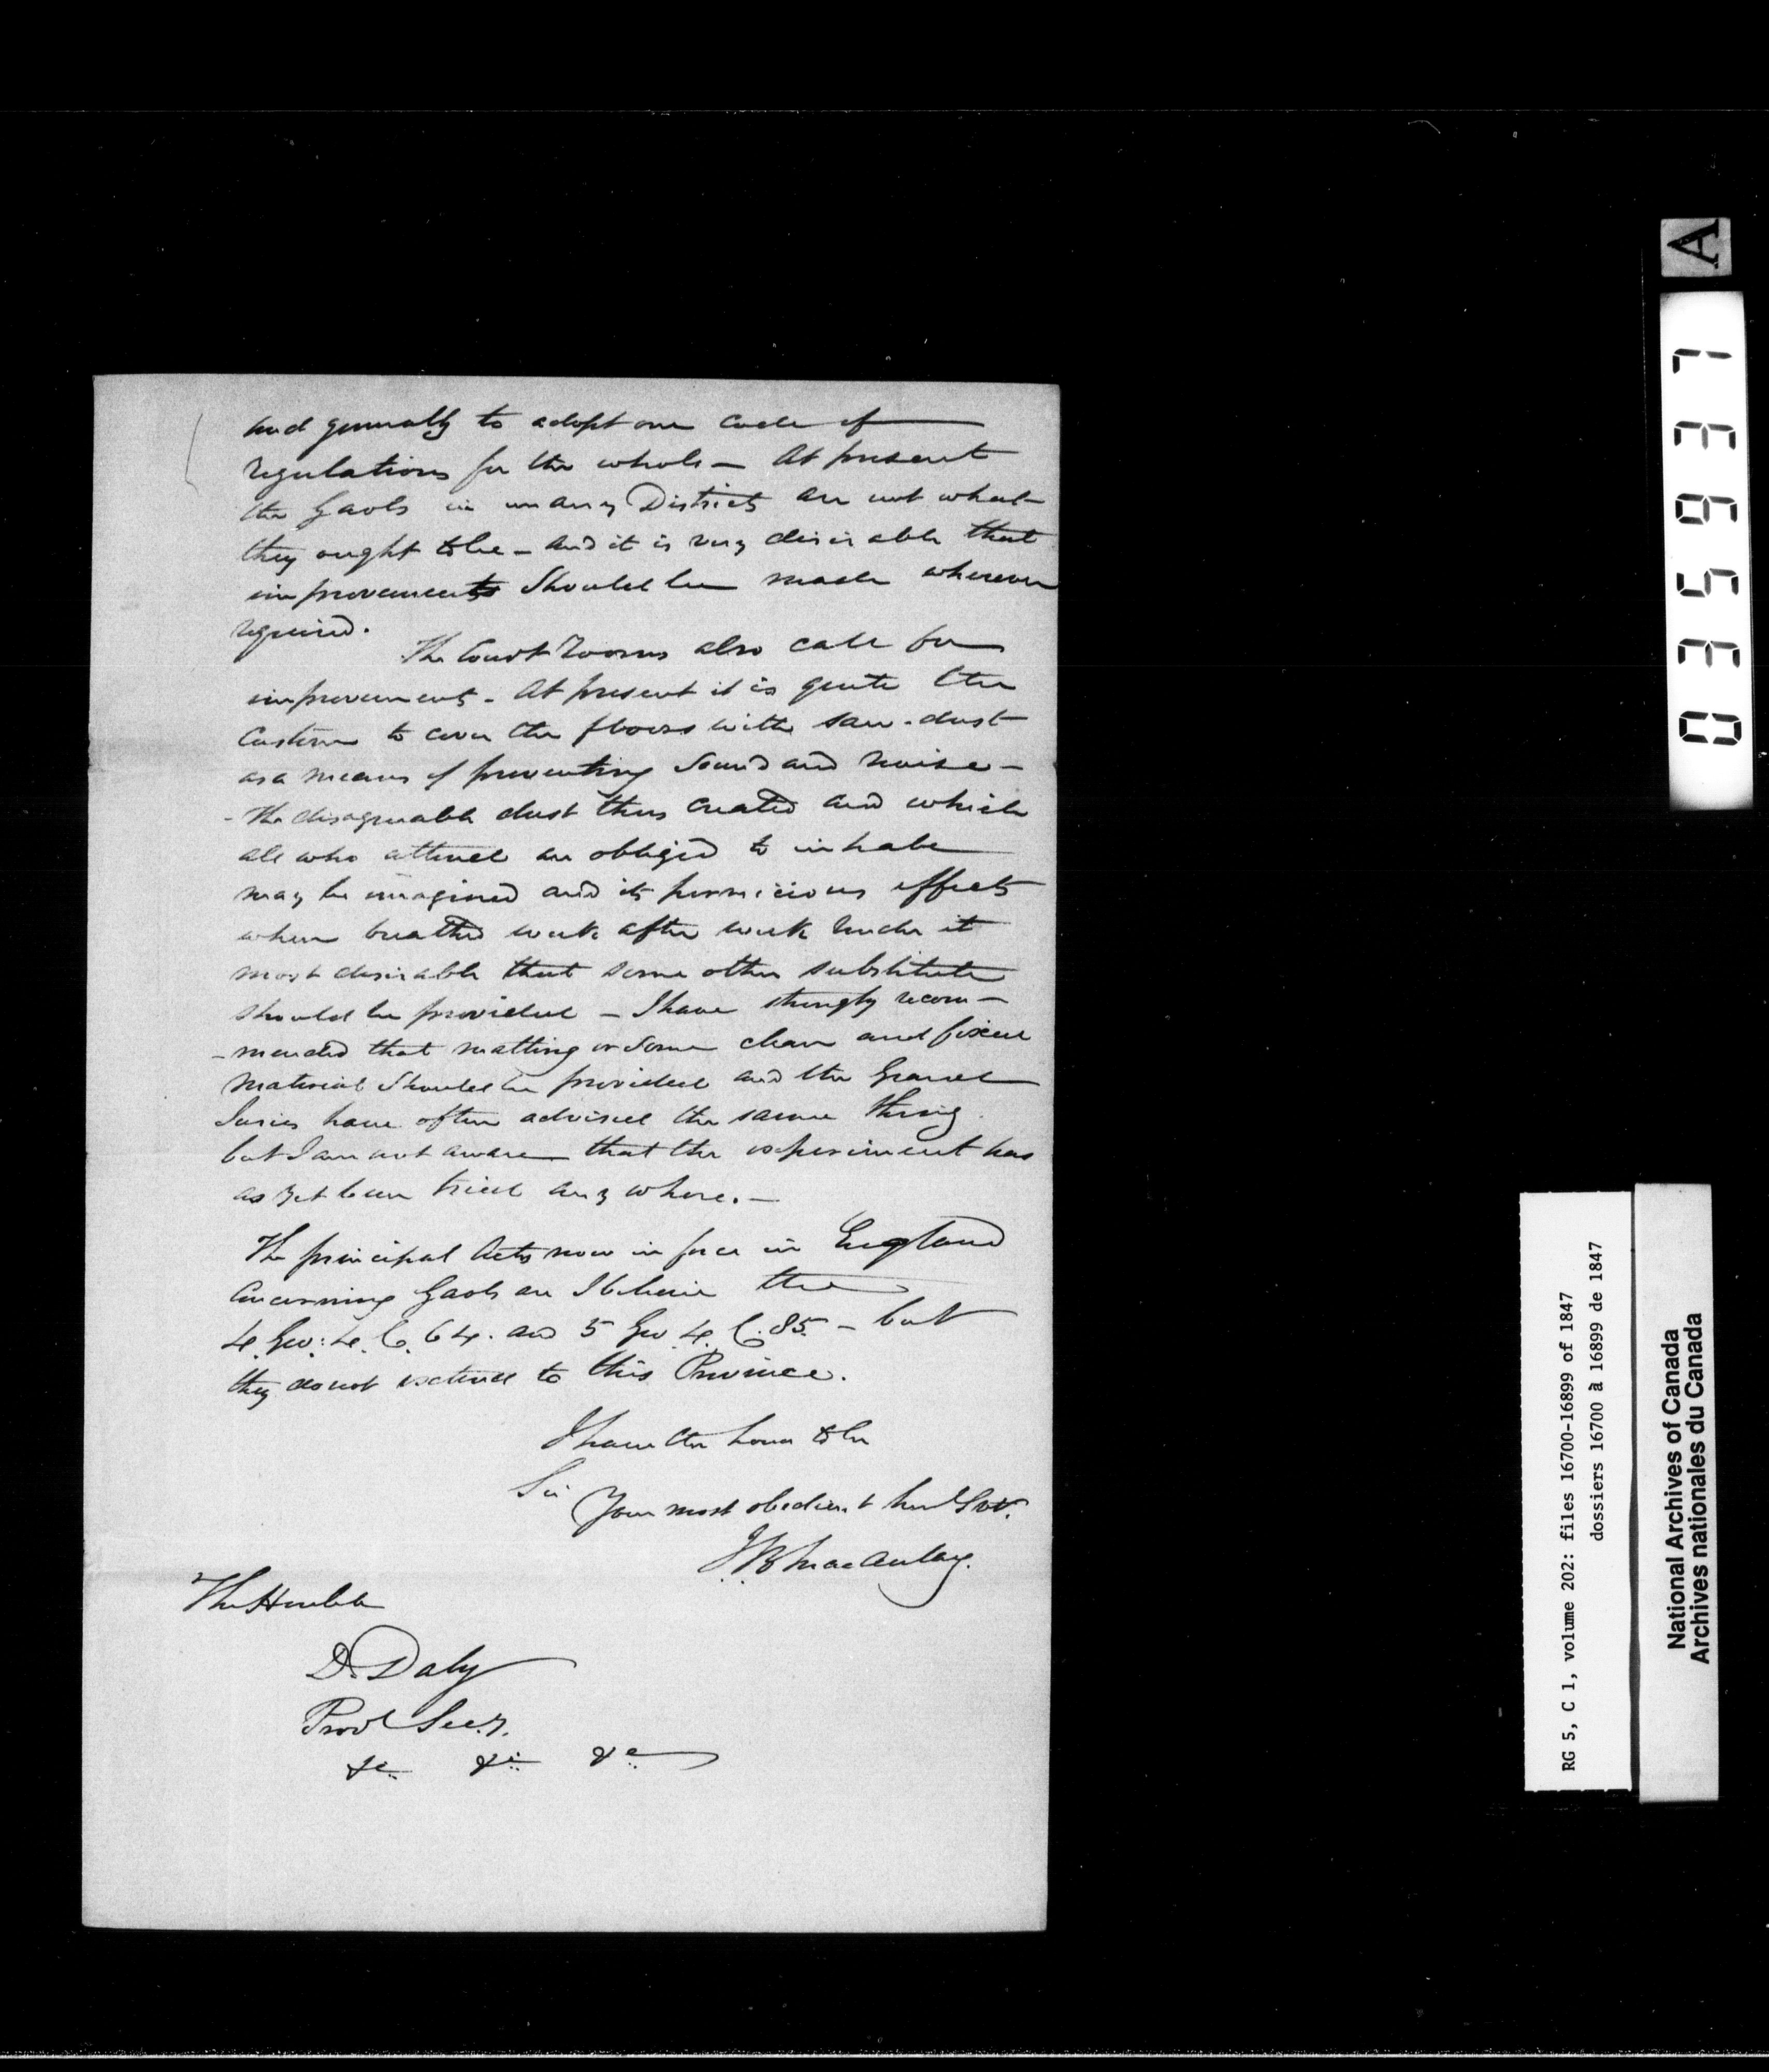 and generally to adopt one code of
regulations for the whole — At present
the Gaols in many Districts are not what
they ought to be — and it is very desirable that
improvements should be made wherever
required.
The Court Rooms also call for
improvement — At present it is quite the
Custom to cover the floors with saw-dust
as a means of preventing sound and noise —
- The disagreeable dust thus created and which
all who attend are obliged to inhale
may be imagined and its pernicious effects
when breathed week after week render it
most desirable that some other substitute
should be provided — I have strongly recom-
-mended that matting or some clean and fixed
material should be provided and the Grand
Juries have often advised the same thing
but I am not aware that the experiment has
as yet been tried any where. —
The principal Acts now in force in England
Concerning Gaols are I believe the
4. Geo: 4. C. 64. and 5 Geo 4. C. 85. — but
they do not extend to this Province.
I have the honor to be
Sir
Your most obedient hul Svt.
J. B Macaulay.
The Honble
D. Daly
Provl Secy.
&c &c &c
A
035937
RG 5, C 1, volume 202: files 16700-16899 of 1847
dossiers 16700 à 16899 de 1847
National Archives of Canada
Archives nationales du Canada